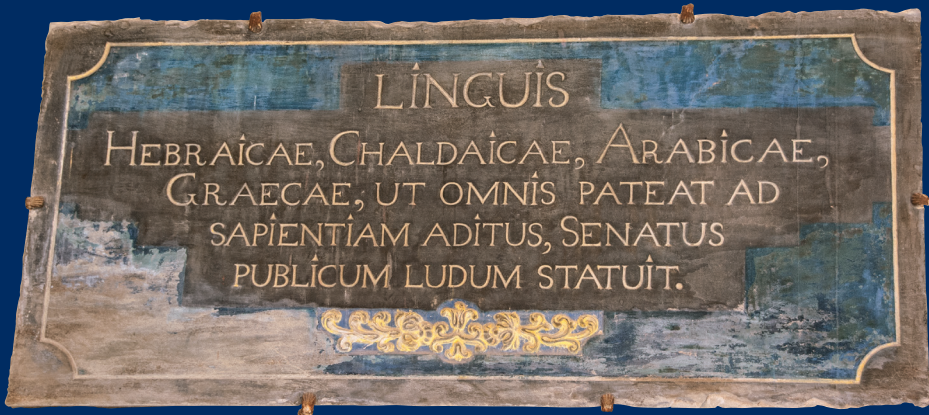 LINGUIS
HEBRAICAE, CHALDAICAE, ARABICAE,
GRAECAE; UT OMNIS PATEAT AD
SAPIENTIAM ADITUS, SENATUS
PUBLICUM LUDUM STATUIT.